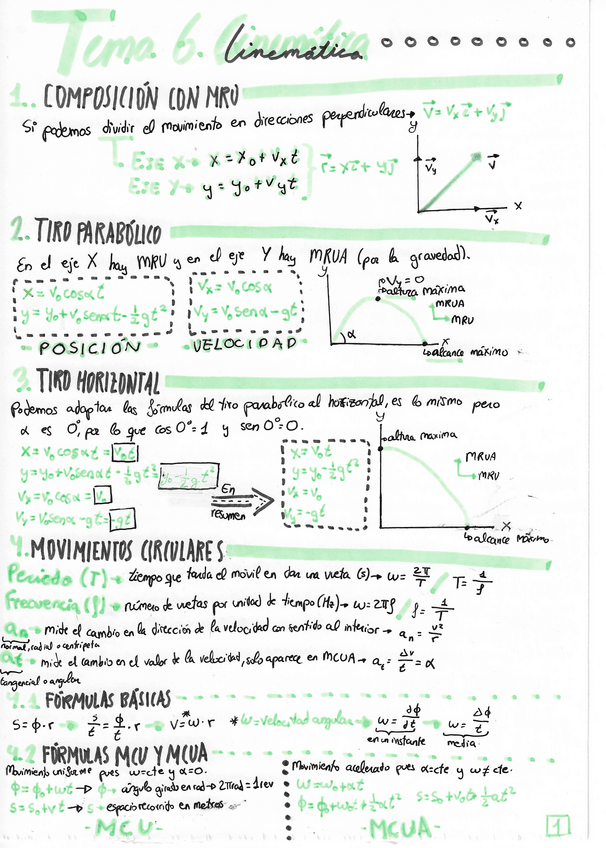 Tema 6. Cinemática
Cinemática
1.. COMPOSICIÓN CON MRU
Si podemos dividir el movimiento en direcciones perpendiculares→ V⃗ = Vx i⃗ + Vy j⃗
EJE X→ x = x₀ + Vx t
EJE Y→ y = y₀ + Vy t
r⃗ = x i⃗ + y j⃗
y
V⃗y
V⃗
V⃗x
x
2.. TIRO PARABÓLICO
En el eje X hay MRU y en el eje Y hay MRUA (por la gravedad).
x = V₀ cosα t
y = y₀ + V₀ senα t - 1/2 g t²
- POSICIÓN -
Vx = V₀ cosα
Vy = V₀ senα - gt
- VELOCIDAD -
y
Vy = 0
altura máxima
MRUA
MRU
α
x
alcance máximo
3. TIRO HORIZONTAL
Podemos adoptar las fórmulas del tiro parabólico al horizontal, es lo mismo pero
α es 0°, por lo que cos 0° = 1 y sen 0° = 0.
x = V₀ cosα t = V₀t
y = y₀ + V₀ senα t - 1/2 g t² = y₀ - 1/2 g t²
Vx = V₀ cosα = V₀
Vy = V₀ senα - gt = -gt
En
resumen
x = V₀t
y = y₀ - 1/2 g t²
Vx = V₀
Vy = -gt
y
altura maxima
MRUA
MRU
x
alcance máximo
4. MOVIMIENTOS CIRCULARES
Periodo (T) → tiempo que tarda el móvil en dar una vueta (s) → ω = 2π/T / T = 1/f
Frecuencia (f) → número de vuetas por unidad de tiempo (Hz) → ω = 2πf / f = 1/T
an → mide el cambio en la dirección de la velocidad con sentido al interior → an = v²/r
normal, radial o centrípeta
at → mide el cambio en el valor de la velocidad, solo aparece en MCUA → at = Δv/t = α
tangencial o angular
4.1 FÓRMULAS BÁSICAS
s = ϕ·r → s/t = ϕ/t · r → V = ω* · r *ω = velocidad angular → ω = ∂ϕ/∂t → ω = Δϕ/t
en un instante
media
4.2 FÓRMULAS MCU Y MCUA
Movimiento uniforme pues ω = cte y α = 0.
ϕ = ϕ₀ + ωt → ϕ → ángulo girado en rad → 2π rad = 1 rev
s = s₀ + vt → s → espacio recorrido en metros
- MCU -
Movimiento acelerado pues α = cte y ω ≠ cte.
ω = ω₀ + αt
ϕ = ϕ₀ + ω₀t + 1/2 αt² s = s₀ + v₀t + 1/2 at²
- MCUA -
1